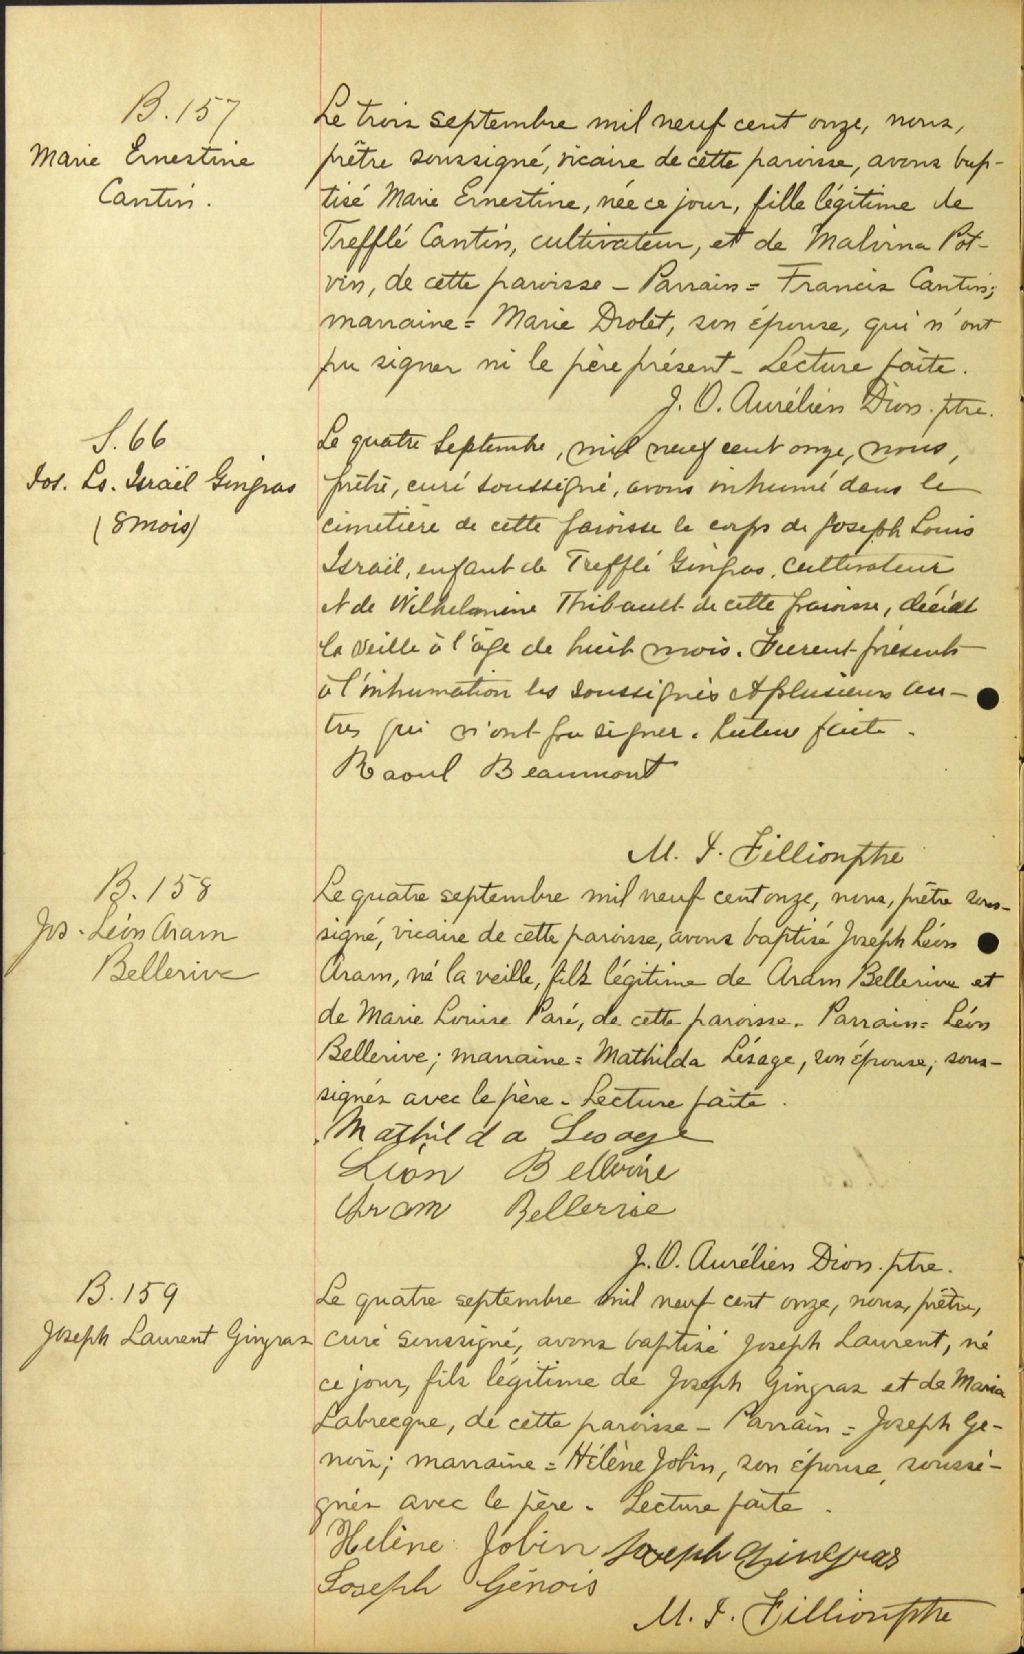 B. 157
Marie Ernestine
Cantin.
Le trois septembre mil neuf cent onze, nous,
prêtre soussigné, vicaire de cette paroisse, avons bap-
tisé Marie Ernestine, née ce jour, fille légitime de
Trefflé Cantin, cultivateur, et de Malvina Pot-
vin, de cette paroisse - Parrain = Francis Cantin;
marraine = Marie Drolet, son épouse, qui n'ont
pu signer ni le père présent - Lecture faite.
J. O. Aurélien Dion. ptre.
S. 66
Jos. Ls. Israël Gingras
(8 mois)
Le quatre Septembre, mil neuf cent onze, nous,
prêtre, curé soussigné, avons inhumé dans le
cimetière de cette paroisse le corps de Joseph Louis
Israël, enfant de Trefflé Gingras, cultivateur
et de Wilhelmine Thibault de cette paroisse, décédé
la veille à l'âge de huit mois. Furent présents
à l'inhumation les soussignés et plusieurs au-
tres qui n'ont pu signer. Lecture faite.
Raoul Beaumont
M. J. Fillion ptre
B. 158
Jos. Léon Aram
Bellerive
Le quatre septembre mil neuf cent onze, nous, prêtre sous-
signé, vicaire de cette paroisse, avons baptisé Joseph Léon
Aram, né la veille, fils légitime de Aram Bellerive et
de Marie Louise Paré, de cette paroisse - Parrain = Léon
Bellerive; marraine = Mathilda Lésage, son épouse, sous-
signés avec le père - Lecture faite.
Mathilda Lesage
Léon Bellerive
Aram Bellerive
J. O. Aurélien Dion. ptre.
B. 159
Joseph Laurent Gingras
Le quatre septembre mil neuf cent onze, nous, prêtre,
curé soussigné, avons baptisé Joseph Laurent, né
ce jour, fils légitime de Joseph Gingras et de Maria
Labrecque, de cette paroisse - Parrain = Joseph Ge-
nois; marraine = Hélène Jobin, son épouse, soussi-
gnés avec le père - Lecture faite.
Helène Jobin Joseph Gingras
Joseph Génois
M. J. Fillion ptre